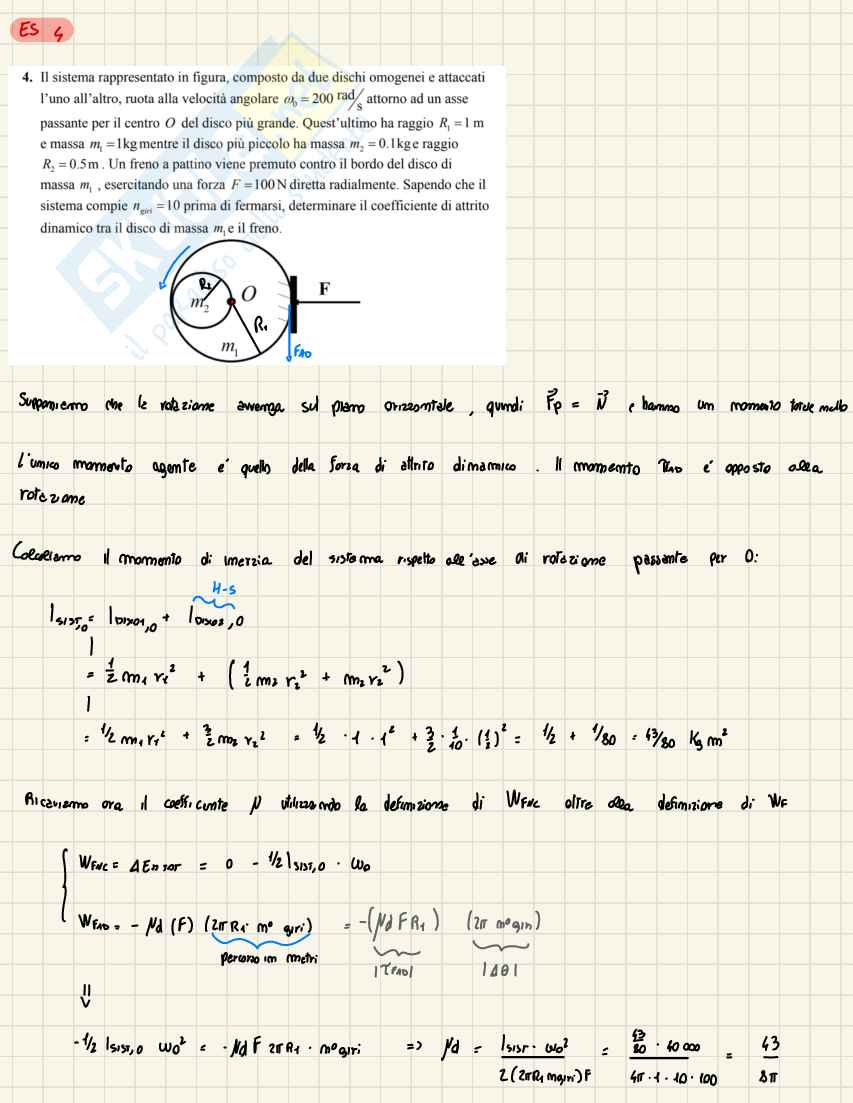 ES 4
4. Il sistema rappresentato in figura, composto da due dischi omogenei e attaccati
l'uno all'altro, ruota alla velocità angolare ω₀ = 200 rad/s attorno ad un asse
passante per il centro O del disco più grande. Quest'ultimo ha raggio R₁ = 1 m
e massa m₁ = 1kg mentre il disco più piccolo ha massa m₂ = 0.1kg e raggio
R₂ = 0.5m . Un freno a pattino viene premuto contro il bordo del disco di
massa m₁ , esercitando una forza F = 100 N diretta radialmente. Sapendo che il
sistema compie n_giri = 10 prima di fermarsi, determinare il coefficiente di attrito
dinamico tra il disco di massa m₁ e il freno.
R₂ O F
m₂ R₁
m₁ FAD
Supponiamo che la rotazione avvenga sul piano orizzontale , quindi F⃗p = N⃗ e hanno un momento totale nullo
L'unico momento agente e' quello della forza di attrito dinamico . Il momento τFAD e' opposto alla
rotazione
Calcoliamo il momento di inerzia del sistema rispetto all'asse di rotazione passante per O:
H-S
I SIST,O = I DISCO1,O + I DISCO2,O
= 1/2 m₁ r₁² + (1/2 m₂ r₂² + m₂ r₂²)
= 1/2 m₁ r₁² + 3/2 m₂ r₂² = 1/2 · 1 · 1² + 3/2 · 1/10 · (1/2)² = 1/2 + 1/80 = 43/80 Kg m²
Ricaviamo ora il coefficiente μ utilizzando la definizione di WFNC oltre alla definizione di WF
WFNC = ΔEn rot = 0 - 1/2 I SIST,O · ω₀
WFAD = - μd (F) (2π R₁ · n° giri) = -(μd F R₁) (2π n° giri)
percorso in metri |τFAD| |Δθ|
⇓
-1/2 I SIST,O ω₀² = - μd F 2π R₁ · n° giri => μd = I SIST · ω₀² / 2(2πR₁ ngiri)F = 43/80 · 40 000 / 4π · 1 · 10 · 100 = 43 / 8π